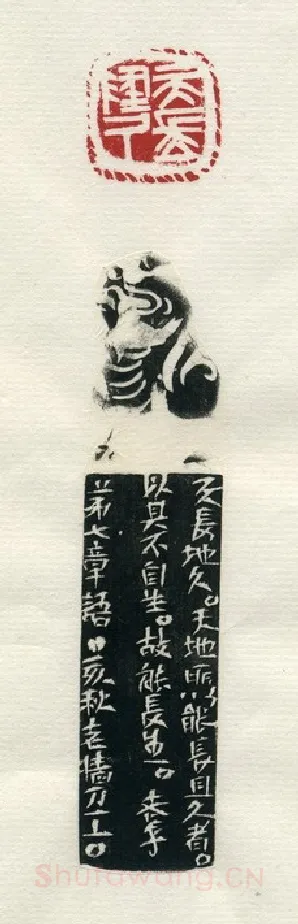 天長地久。天地所以能長且久者。
以其不自生。故能長生。老子
第七章語。丁亥秋老牆刀工。
Shufawang.CN